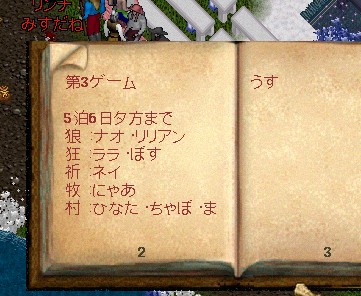 リンナ
みすだね
第3ゲーム
5泊6日夕方まで
狼 :ナオ・リリアン
狂 :ララ・ぽす
祈 :ネイ
牧 :にゃあ
村 :ひなた・ちゃぼ・ま
2
うす
3